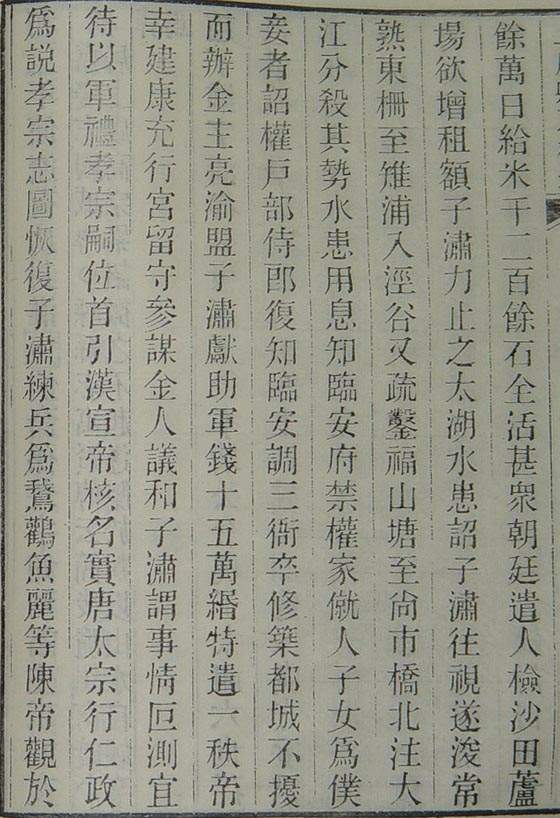 餘萬日給米千二百餘石全活甚衆朝廷遣人檢沙田蘆
場欲增租額子潚力止之太湖水患詔子潚往視遂浚常
熟東柵至雉浦入涇谷又疏鑿福山塘至尙市橋北注大
江分殺其勢水患用息知臨安府禁權家僦人子女爲僕
妾者詔權戸部侍郎復知臨安調三衙卒修築都城不擾
而辦金主亮渝盟子潚獻助軍錢十五萬緡特遣一秩帝
幸建康充行宮留守參謀金人議和子潚謂事情叵測宜
待以軍禮孝宗嗣位首引漢宣帝核名實唐太宗行仁政
爲説孝宗志圖恢復子潚練兵爲鵞鸛魚麗等陳帝觀於